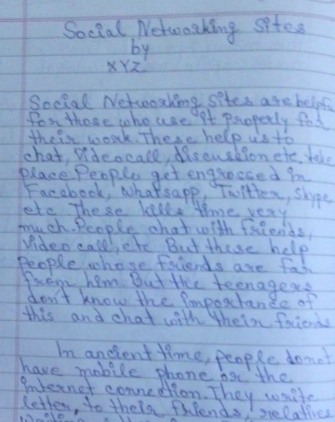 Social Networking Sites
by
XYZ
Social Networking Sites are helpful
for those who use it properly for
their work. These help us to
chat, Videocall, discussion etc. take
place. People get engrossed in
Facebook, Whatsapp, Twitter, Skype
etc. These kills time very
much. People chat with friends,
Video call, etc But these help
people whose friends are far
from him. But the teenagers
don't know the importance of
this and chat with their friends
In ancient time, people do not
have mobile phone or the
internet connection. They write
letter, to their friends, relatives